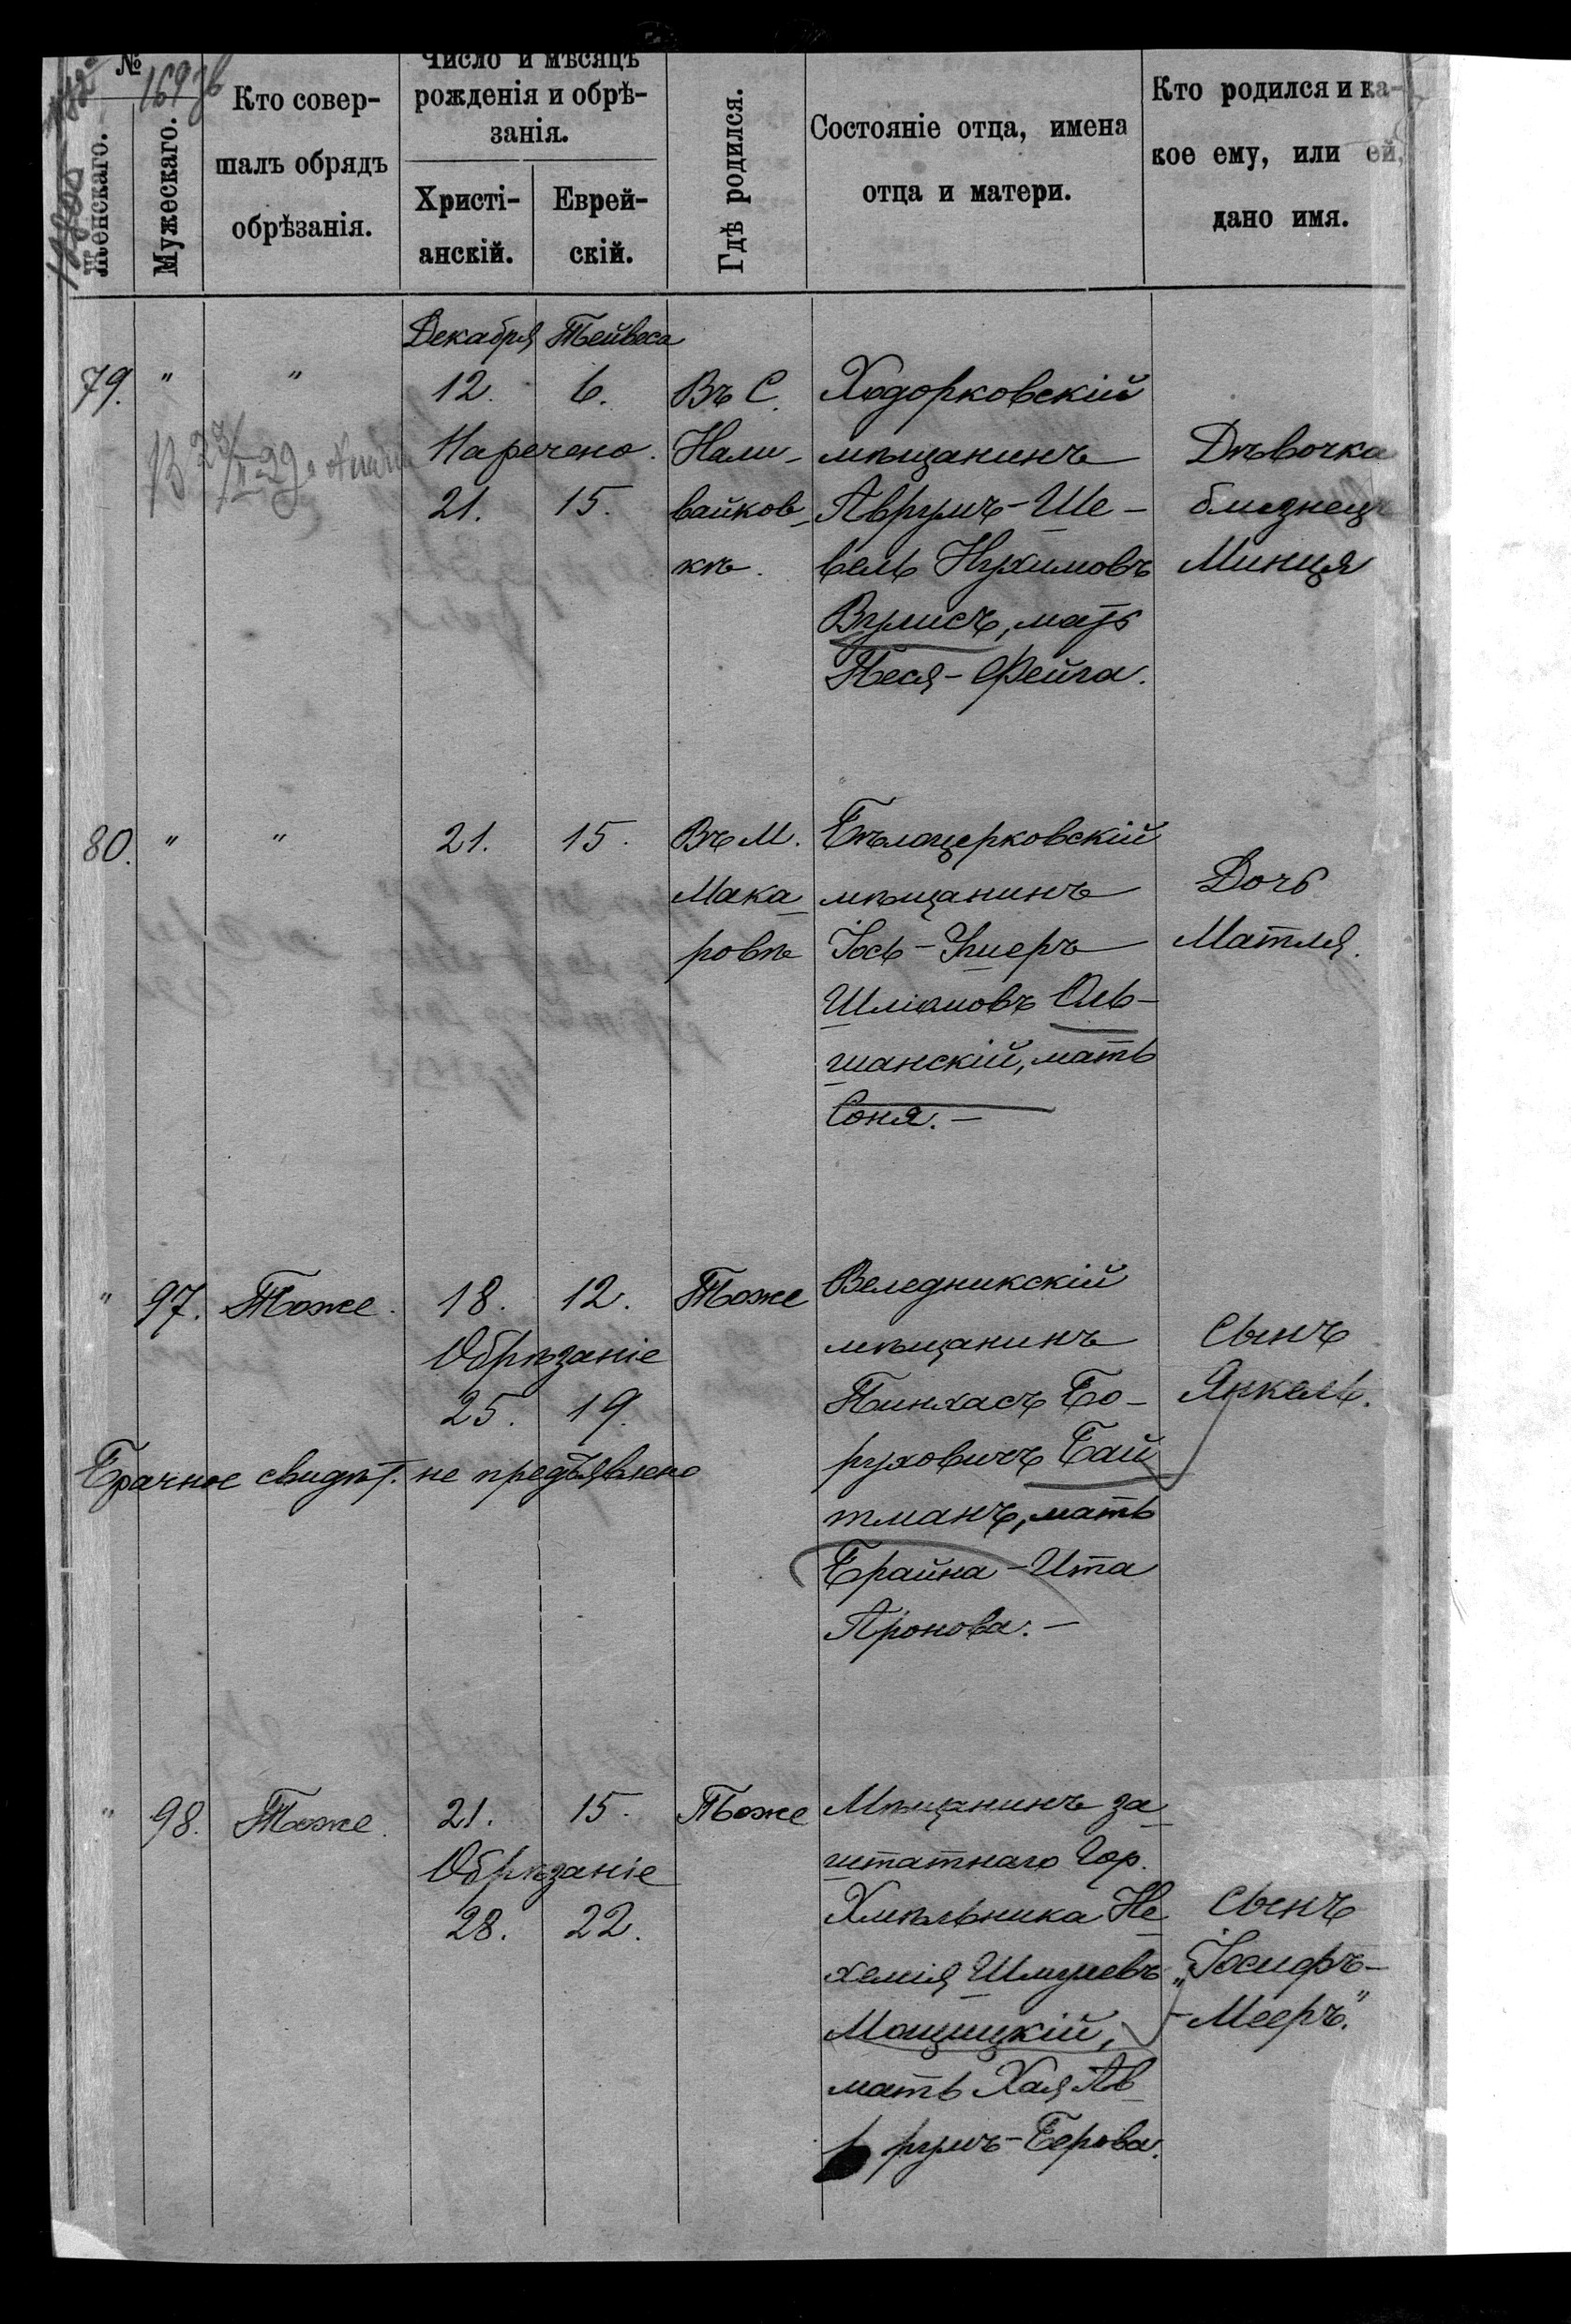 №
169зв
Женскаго.
Мужескаго.
Кто совер-
шалъ обрядъ
обрѣзанія.
Число и мѣсяцъ
рожденія и обрѣ-
занія.
Христі-
анскій.
Еврей-
скій.
Гдѣ родился.
Состояніе отца, имена
отца и матери.
Кто родился и ка-
кое ему, или ей,
дано имя.
Декабря Тейвеса
79. " " 12. 6.
Наречено.
21. 15.
Въ С.
Нали-
вайков-
кѣ.
Ходорковскій
мѣщанинъ
Аврумъ-Ше-
вель Нухимовъ
Вулисъ, мать
Песя-Фейга.
Дѣвочка
близнецъ
Минця
80. " " 21. 15.
Въ М.
Мака-
ровѣ
Бѣлоцерковскій
мѣщанинъ
Іось-Ушеръ
Шліомовъ Оль-
шанскій, мать
Соня.-
Дочь
Матля.
" 97. Тоже. 18. 12. Тоже
Обрѣзаніе
25. 19.
Брачное свидѣт. не предъявлено
Веледникскій
мѣщанинъ
Пинхасъ Бо-
руховичъ Бай
тманъ, мать
Брайна-Ита
Аронова.-
Сынъ
Янкель.
" 98. Тоже. 21. 15. Тоже
Обрѣзаніе
28. 22.
Мѣщанинъ за-
штатнаго Гор.
Хмѣльника Не-
хемія Шмулевъ
Мощицкій,
мать Хая Ав-
румъ-Берова.
Сынъ
„Іосифъ-
-Мееръ."